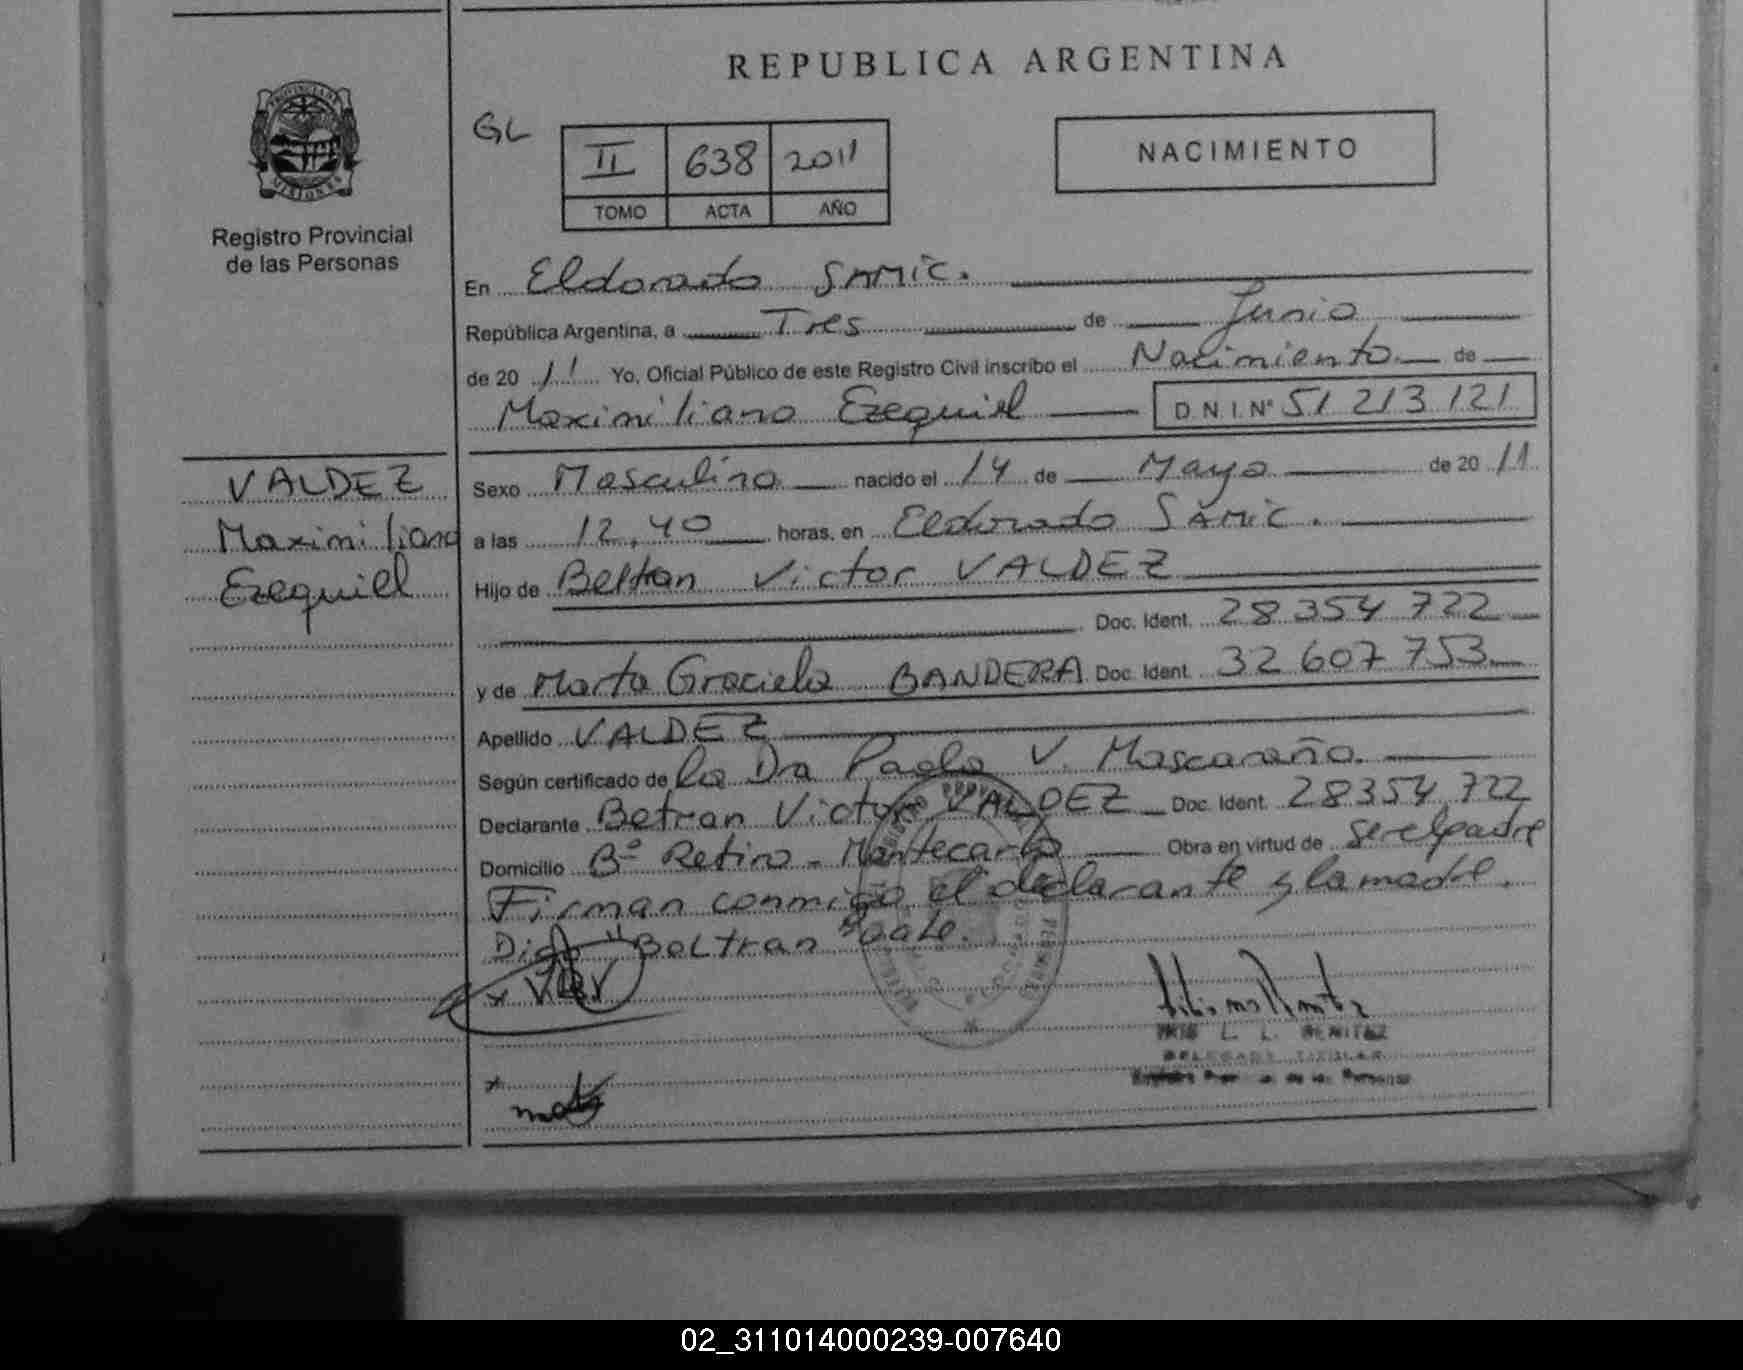 REPUBLICA ARGENTINA
PROVINCIA DE
MISIONES
Registro Provincial
de las Personas
GL
II 638 2011
TOMO ACTA AÑO
NACIMIENTO
En Eldorado SAMIC.
República Argentina, a Tres de Junio
de 20 11 Yo, Oficial Público de este Registro Civil inscribo el Nacimiento de
Maximiliano Ezequiel D.N.I.Nº 51 213 121
VALDEZ
Maximiliano
Ezequiel
Sexo Masculino nacido el 14 de Mayo de 20 11
a las 12,40 horas, en Eldorado SAMIC.
Hijo de Beltran Victor VALDEZ
Doc. Ident. 28 354 722
y de Marta Graciela BANDERA Doc. Ident. 32 607 753
Apellido VALDEZ
Según certificado de la Dra Paola V. Mascaraño.
Declarante Betran Victor VALDEZ Doc. Ident. 28354 722
Domicilio Bº Retiro - Montecarlo Obra en virtud de ser el padre
Firman conmigo el declarante y la madre.
Digo "Beltran" Vale.
x
L. L. BENITEZ
DELEGADA TITULAR
x
02_311014000239-007640